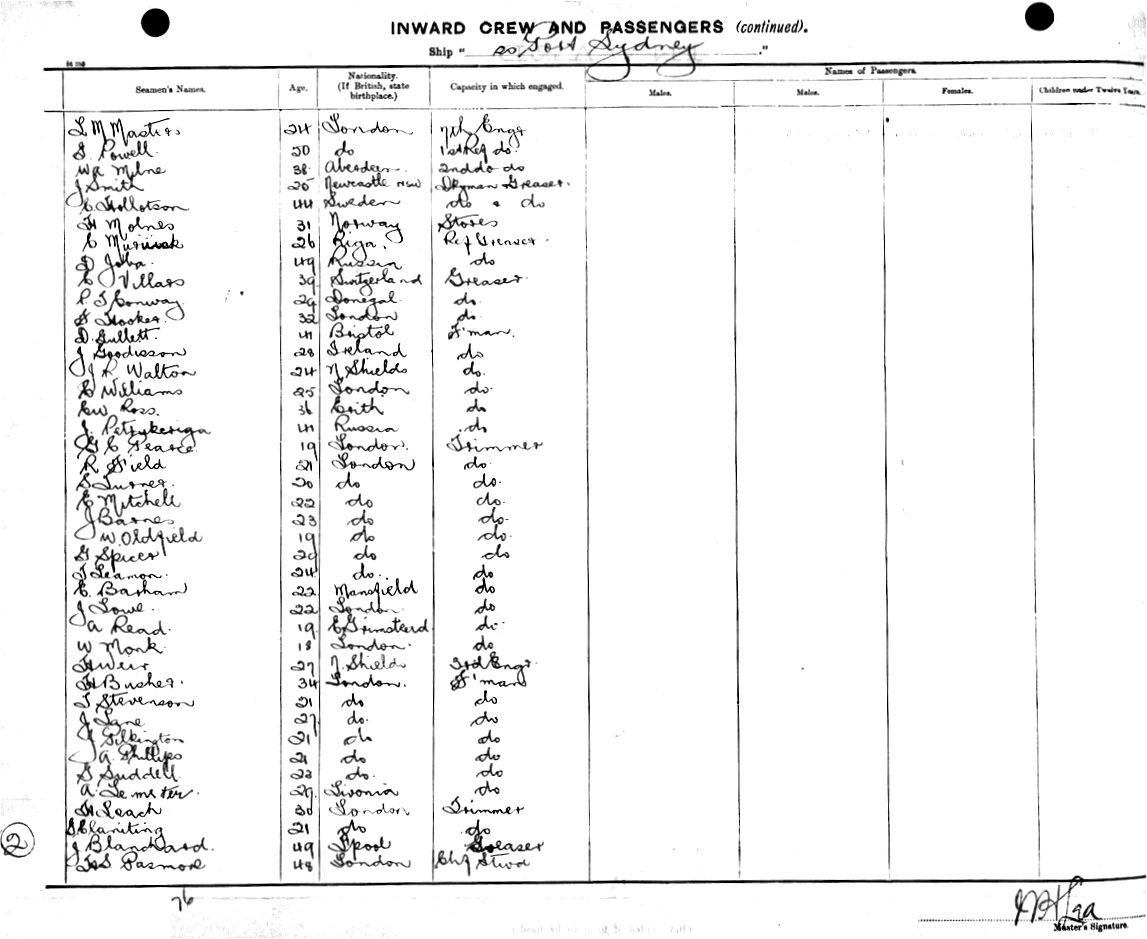 INWARD CREW AND PASSENGERS (continued).
Ship " ss Port Sydney "
Seamen's Names. Age. Nationality. (If British, state birthplace.) Capacity in which engaged. Names of Passengers.
Males. Males. Females. Children under Twelve Years.
L M Masters 24 London 7th Engr
S. Powell. 50 do 1st Ref do.
W R Milne 38 Aberdeen. 2nd do do
J Smith 25 Newcastle NSW Dkyman Greaser.
C Hollotson 44 Sweden do & do
H Molnes 31 Norway Stores
C 26 Riga. Ref Greaser.
D Joba. 49 Russia do
C Villars 39 Switzerland Greaser.
P. J Conway. 29 Donegal. do.
F Hooker. 32 London do.
D. Gullett. 41 Bristol F'man.
J Goodisson 28 Ireland do
J R Walton 24 N Shields do.
C Williams 25 London do.
E W Ross. 36 Erith do
J. 41 Russia do
G C Pearce. 19 London. Trimmer
R Field 21 London do.
S Turner. 20 do do.
E Mitchell 22 do do.
J Barnes 23 do do.
W. Oldfield 19 do do.
G Spicer 20 do do
T Leamon. 24 do. do
E. Basham 22 Mansfield do
J Lowe. 22 London. do
A Read. 19 E Grimstead do.
W Monk. 18 London. do
H Weir 27 N. Shields 3rd Engr.
H Busher. 34 London. F'man
T Stevenson 21 do do
J Lane 27 do. do
J Pilkington 21 do do
A. Phillips 21 do do
G Suddell. 22 do. do
A. Lemster. 27 Livonia do
H Leach 30 London Trimmer
S Claniting 21 do do
J Blanchard. 49 L'pool Greaser
H S Pasmore 48 London Chf Stwd
2
76
Master's Signature.